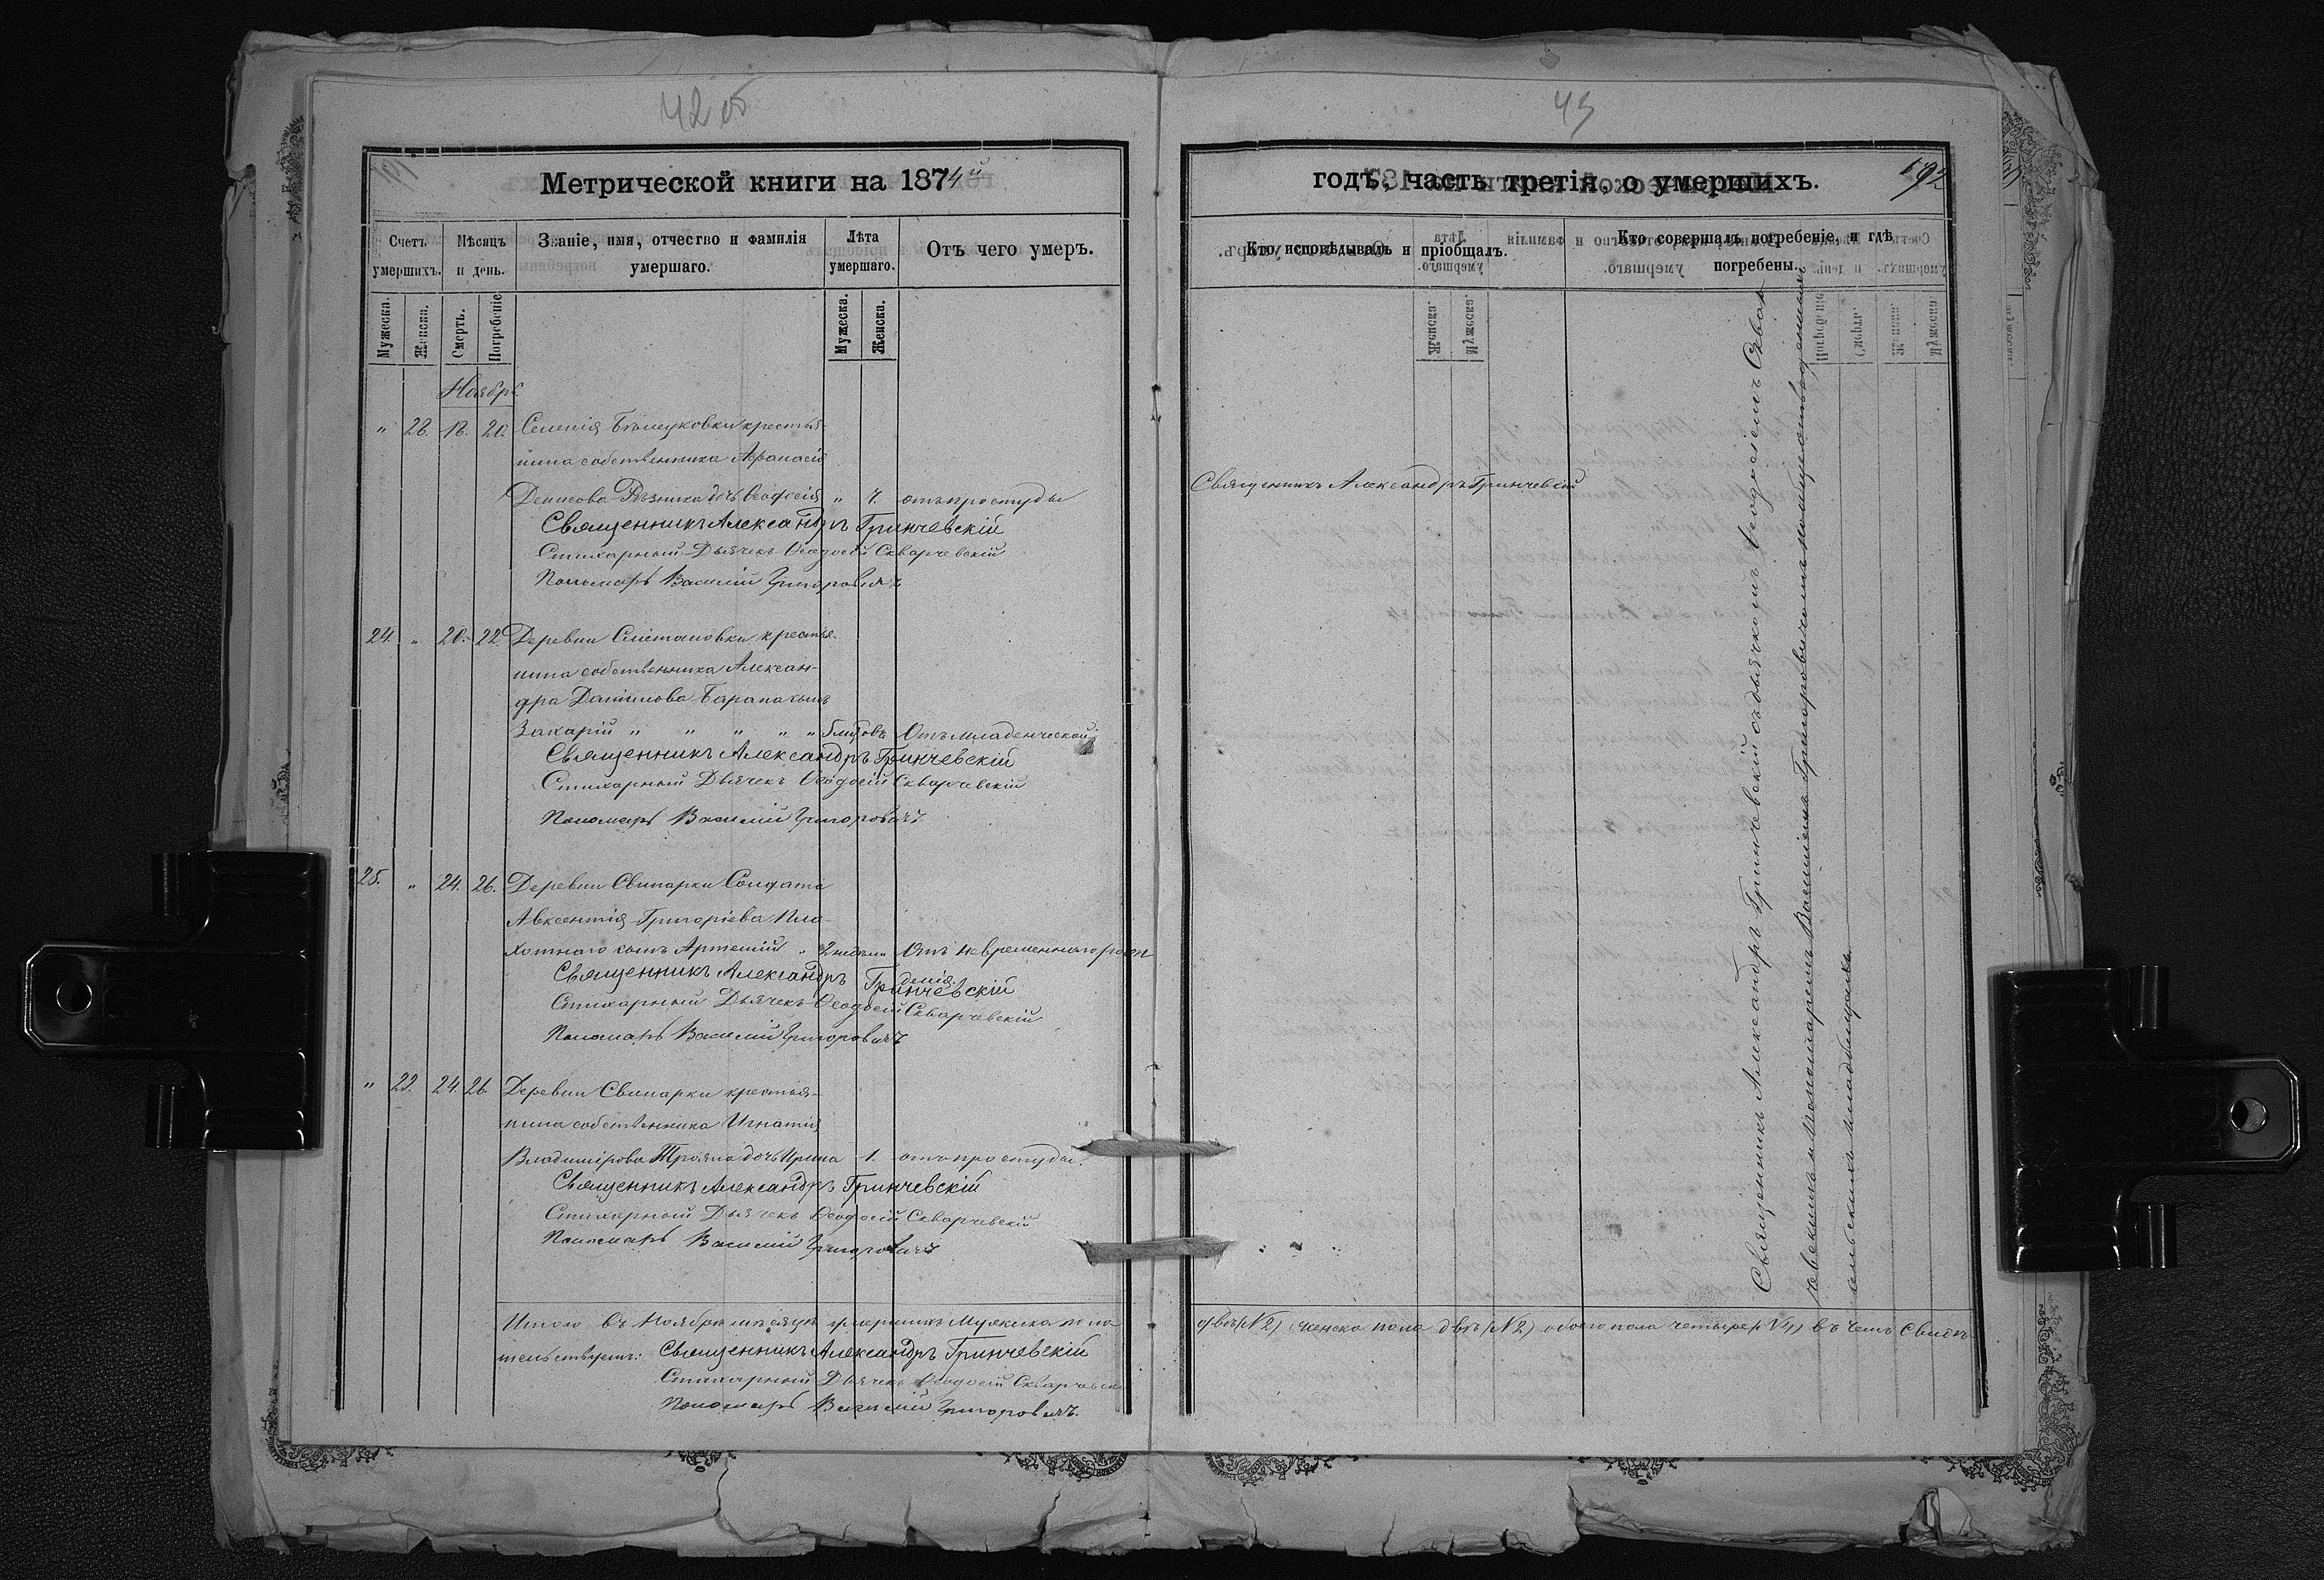 42 об
43
Метрической книги на 1874й
годъ, часть третія, о умершихъ.
192
Счетъ умершихъ.
Мѣсяцъ и день.
Званіе, имя, отчество и фамилія умершаго.
Лѣта умершаго.
Отъ чего умеръ.
Кто исповѣдывалъ и пріобщалъ.
Кто совершалъ погребеніе, и гдѣ погребены.
Мужеска.
Женска.
Смерть.
Погребеніе
Мужеска.
Женска.
Ноябрь
" 28. 18. 20. Селенія крестья-
нина собственника Афанасія
Денисова Рѣзника дочь Ѳеодосія " 4. отъ простуды
Священникъ Александръ Гринчевскій
Священникъ Александръ Гринчевскій
Стихарный Дьячекъ Ѳеодосій Скварчевскій
Пономарь Василій Григоровичъ
24. " 20. 22. Деревни Сметановки крестья-
нина собственника Алексан-
дра Даніилова сынъ
Захарій " " " " " Отъ младенческой
Священникъ Александръ Гринчевскій
Стихарный Дьячекъ Ѳеодосій Скварчевскій
Пономарь Василій Григоровичъ
25. " 24. 26. Деревни Свинарки Солдата
Авксентія Григоріева Пла-
хотнаго сынъ Артемій " 2 недѣли Отъ невременнаго рож
денія.
Священникъ Александръ Гринчевскій
Стихарный Дьячекъ Ѳеодосій Скварчевскій
Пономарь Василій Григоровичъ
" 29. 24. 26. Деревни Свинарки крестья-
нина собственника Игнатія
Владимірова Трояна дочь Ирина 1. отъ простуды.
Священникъ Александръ Гринчевскій
Стихарный Дьячекъ Ѳеодосій Скварчевскій
Пономарь Василій Григоровичъ
Священникъ Александръ Гринчевскій съ дьячкомъ Ѳеодосіемъ Сквар
чевскимъ и пономаремъ Василіемъ Григоровичомъ на
кладбищахъ
Итого въ Ноябрѣ мѣсяцѣ умершихъ Мужеска пола
двое (№2) женска пола двѣ (№2) обоего пола четыре (№4) въ чемъ свидѣ
тельствуетъ: Священникъ Александръ Гринчевскій
Стихарный Дьячекъ Ѳеодосій Скварчевскій
Пономарь Василій Григоровичъ.